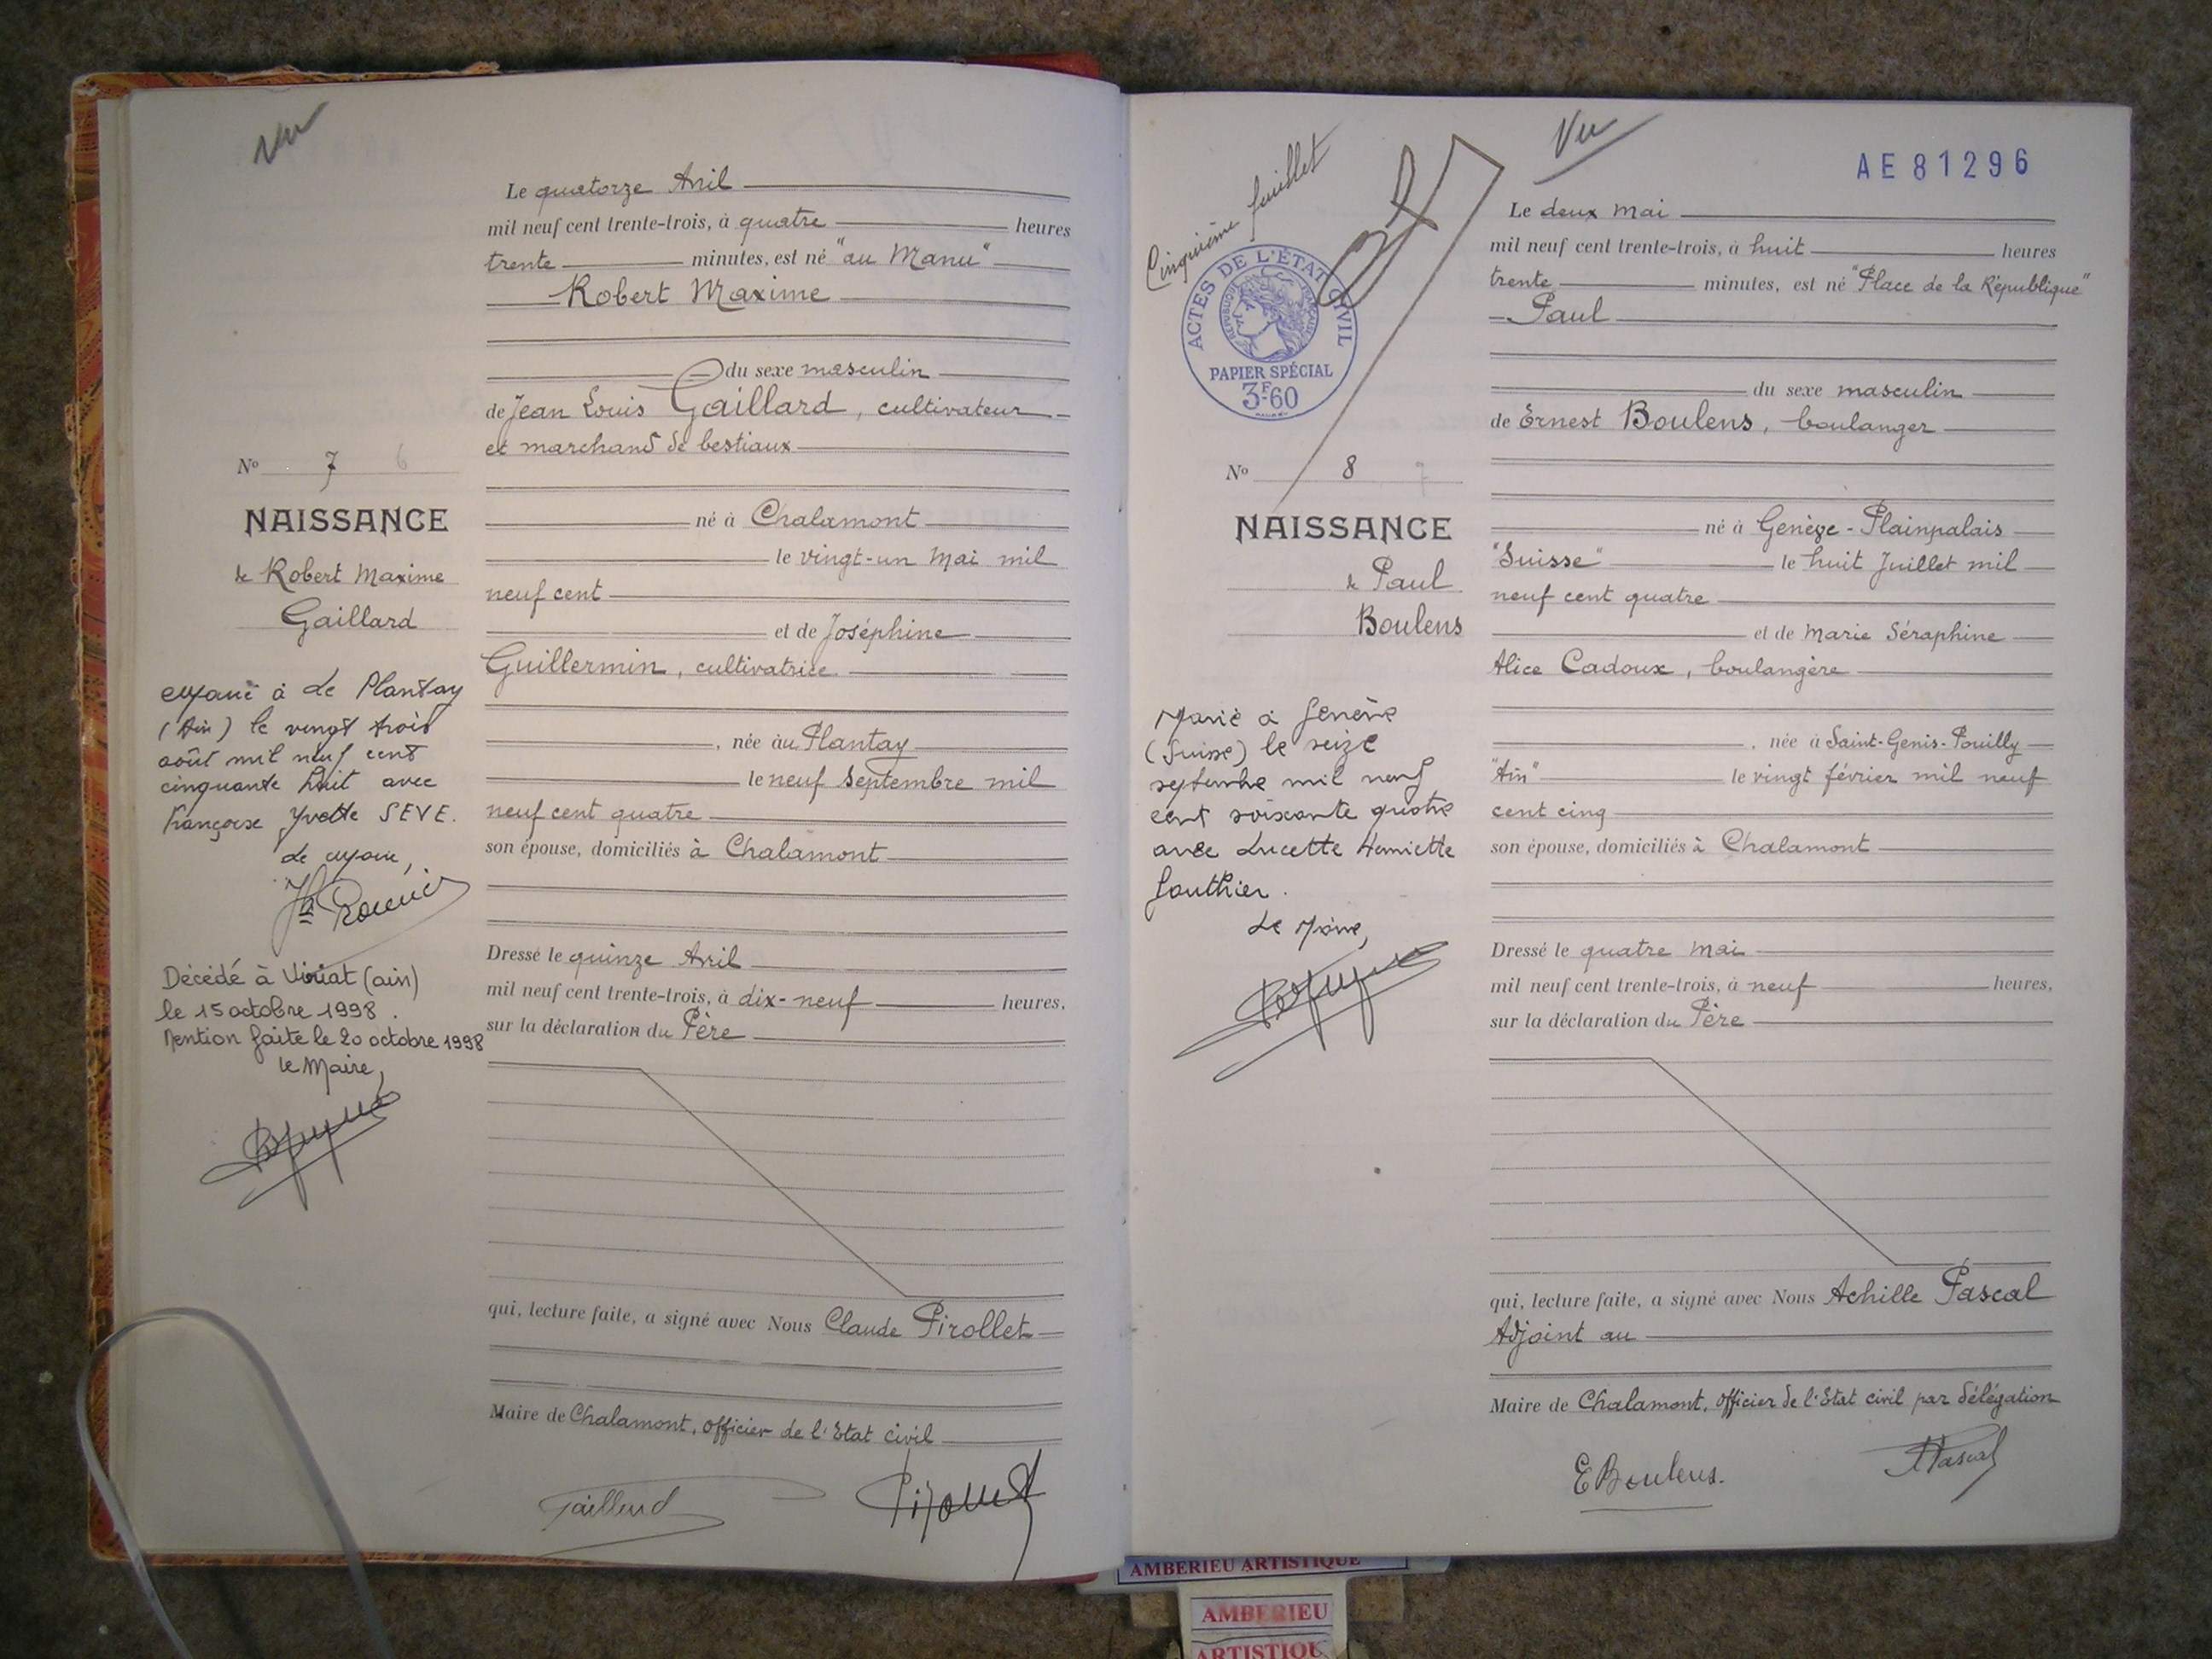 Vu
Le quatorze Avril
mil neuf cent trente-trois, à quatre heures
trente minutes, est né "au Manu"
Robert Maxime
du sexe masculin
de Jean Louis Gaillard, cultivateur
et marchand de bestiaux
né à Chalamont
le vingt-un Mai mil
neuf cent
et de Joséphine
Guillermin, cultivatrice
, née au Plantay
le neuf Septembre mil
neuf cent quatre
son épouse, domiciliés à Chalamont
Dressé le quinze Avril
mil neuf cent trente-trois, à dix-neuf heures,
sur la déclaration du Père
qui, lecture faite, a signé avec Nous Claude Pirollet
Maire de Chalamont, officier de l'Etat civil
Gaillard
No 7 6
NAISSANCE
de Robert Maxime
Gaillard
Marié à Le Plantay
(Ain) le vingt trois
août mil neuf cent
cinquante huit avec
Françoise Yvette SEVE.
Le Maire,
Décédé à Viriat (ain)
le 15 octobre 1998.
Mention faite le 20 octobre 1998
le Maire,
Vu
AE 81296
Cinquième feuillet
ACTES DE L'ÉTAT CIVIL
RÉPUBLIQUE FRANÇAISE
PAPIER SPÉCIAL
3F60
Le deux Mai
mil neuf cent trente-trois, à huit heures
trente minutes, est né "Place de la République"
Paul
du sexe masculin
de Ernest Boulens, boulanger
né à Genève-Plainpalais
"Suisse" le huit Juillet mil
neuf cent quatre
et de Marie Séraphine
Alice Cadoux, boulangère
, née à Saint-Genis-Pouilly
"Ain" le vingt février mil neuf
cent cinq
son épouse, domiciliés à Chalamont
Dressé le quatre Mai
mil neuf cent trente-trois, à neuf heures,
sur la déclaration du Père
qui, lecture faite, a signé avec Nous Achille Pascal
Adjoint au
Maire de Chalamont, officier de l'Etat civil par délégation
E Boulens.
A Pascal
No 8 7
NAISSANCE
de Paul
Boulens
Marié à Genève
(Suisse) le seize
septembre mil neuf
cent soixante quatre
avec Lucette Henriette
Gouthier.
Le Maire,
AMBERIEU ARTISTIQUE
AMBERIEU
ARTISTIQUE